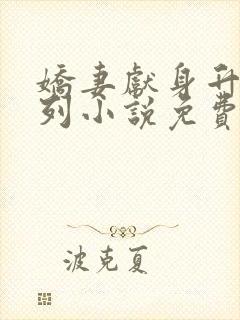 嬌妻獻身升
列小說免費
波克夏